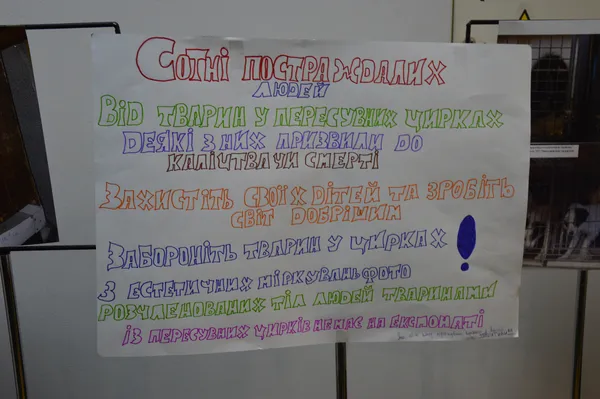 Сотні постраждалих
людей
Від тварин у пересувних цирках
Деякі з них призвили до
каліцтва чи смерті
Захистіть своїх дітей та зробіть
світ добрішим
Забороніть тварин у цирках !
З естетичних міркувань фото
розчленованих тіл людей тваринами
із пересувних цирків немає на експонаті